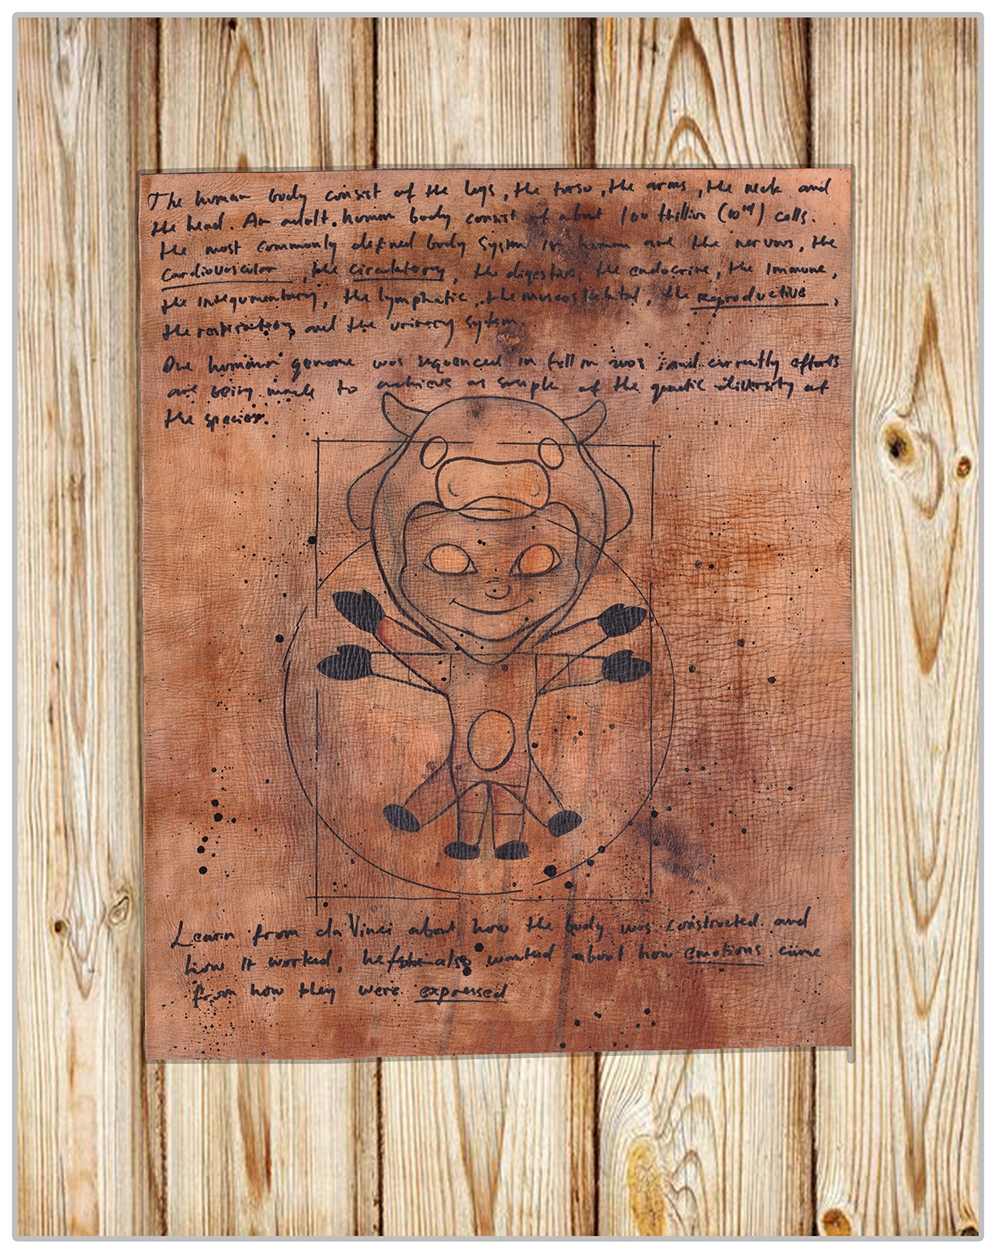 The human body consist of the legs, the torso, the arms, the neck and
the head. An adult human body consist of about 100 trillion (10¹⁴) cells.
the most commonly defined body system in human are the nervous, the
Cardiovascular, the circulatory, the digestive, the endocrine, the immune,
the Integumentary, the lymphatic, the muscoskeletal, the Reproductive,
the respiratory and the urinary system
One human genome was sequenced in full in and currently efforts
are being made to achieve a sample of the genetic diversity of
the species.
Learn from da Vinci about how the body was constructed and
how it worked, he also wanted about how emotions came
from how they were expressed